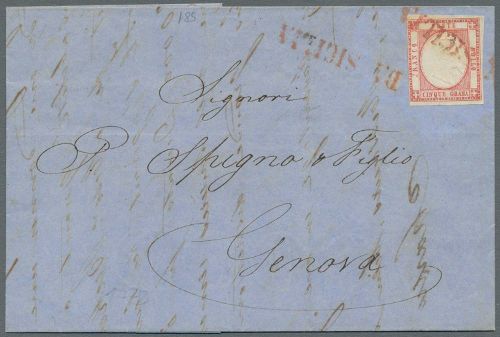 185
DA SICILIA
FRANCO
BOLLO
CINQUE GRANA
Signori
P. Spegno & Figlio
Genova